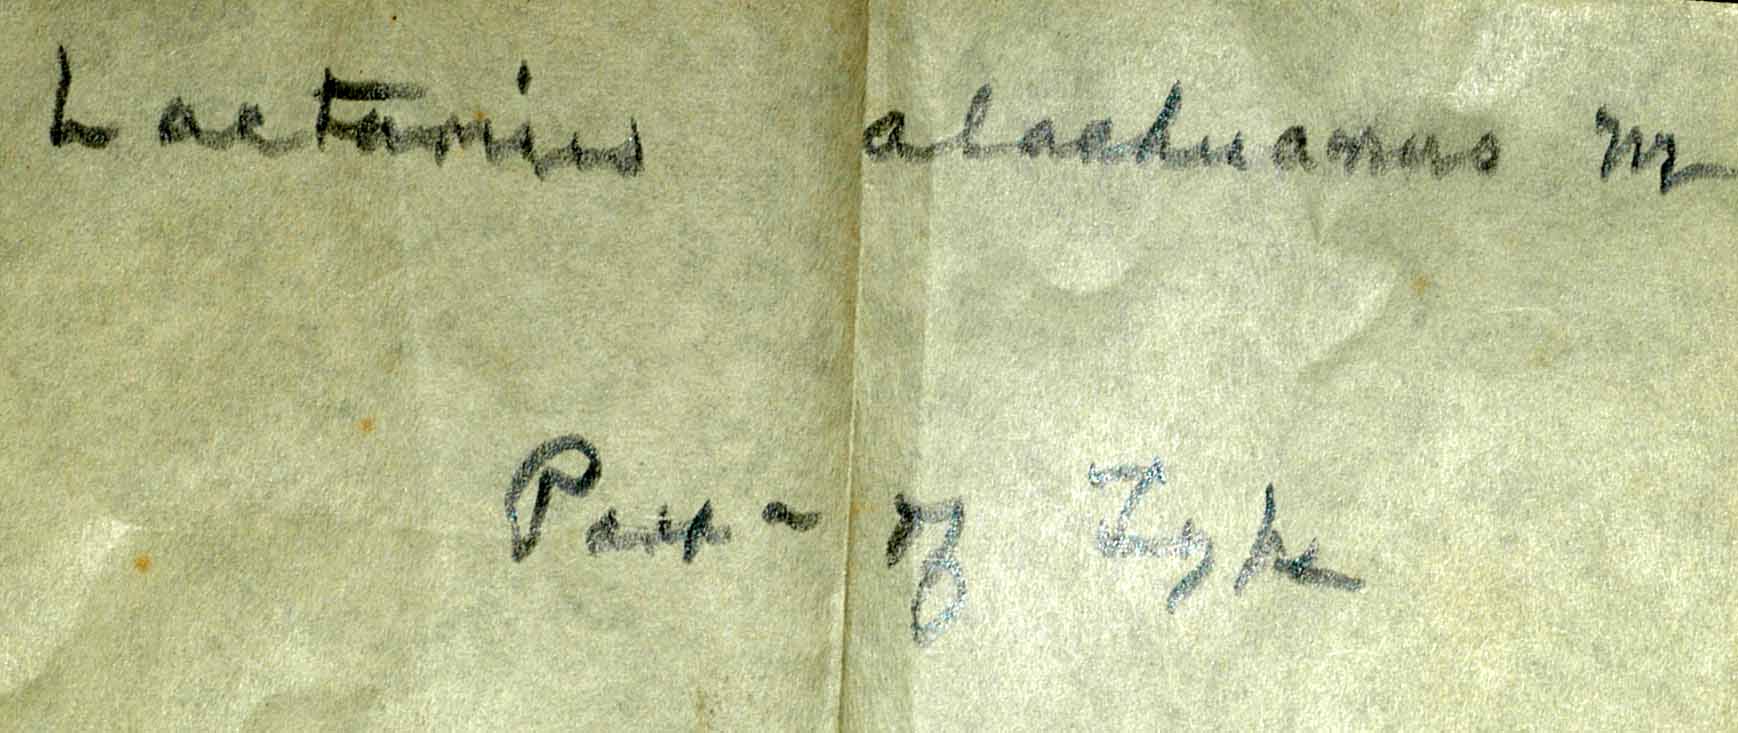 Lactarius alachuanus M
Part of Type